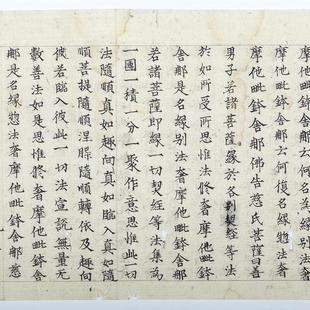 摩他毗鉢舍那云何名緣別法奢
摩他毗鉢舍那云何復名緣惣法奢
摩他毗鉢舍那佛告慈氏菩薩曰善
男子若諸菩薩緣於各別契經等法
於如所受所思惟法修奢摩他毗鉢
舍那是名緣別法奢摩他毗鉢舍那
若諸菩薩即緣一切契經等法集為
一團一積一分一聚作意思惟此一切
法隨順真如趣向真如臨入真如隨
順菩提隨順涅槃隨順轉依及趣向
彼若臨入彼此一切法宣說無量無
數善法如是思惟修奢摩他毗鉢舍
那是名緣惣法奢摩他毗鉢舍那慈